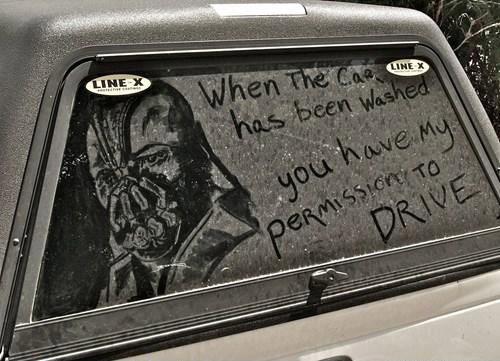 LINE-X
PROTECTIVE COATINGS
LINE-X
PROTECTIVE COATINGS
When The Car
has been washed
you have My
permission To
DRIVE